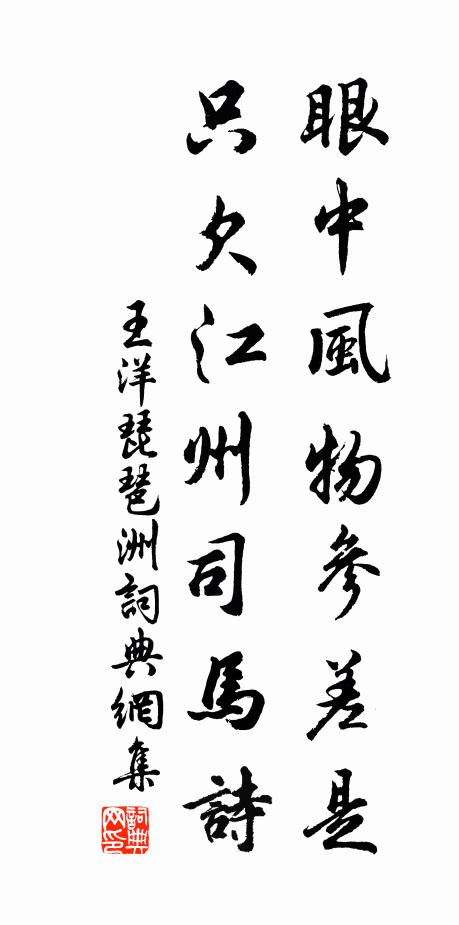 眼中風物參差是
只欠江州司馬詩
王洋琵琶洲詞典網集
詞典網印